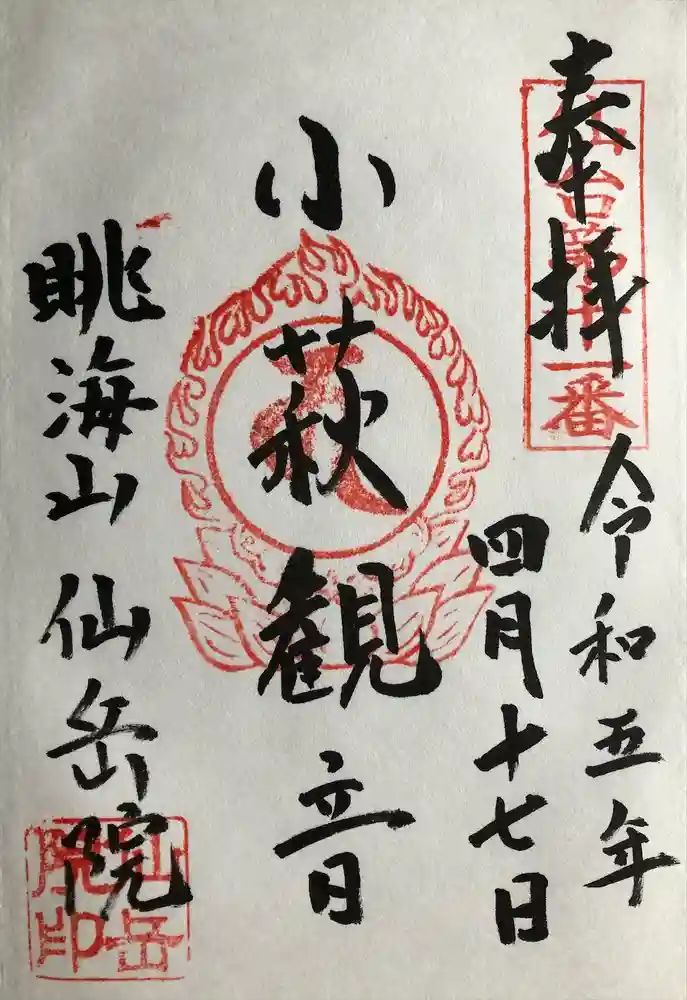 奉拝
仙台第十一番
令和五年
四月十七日
小萩観音
眺海山 仙岳院
仙岳
院印